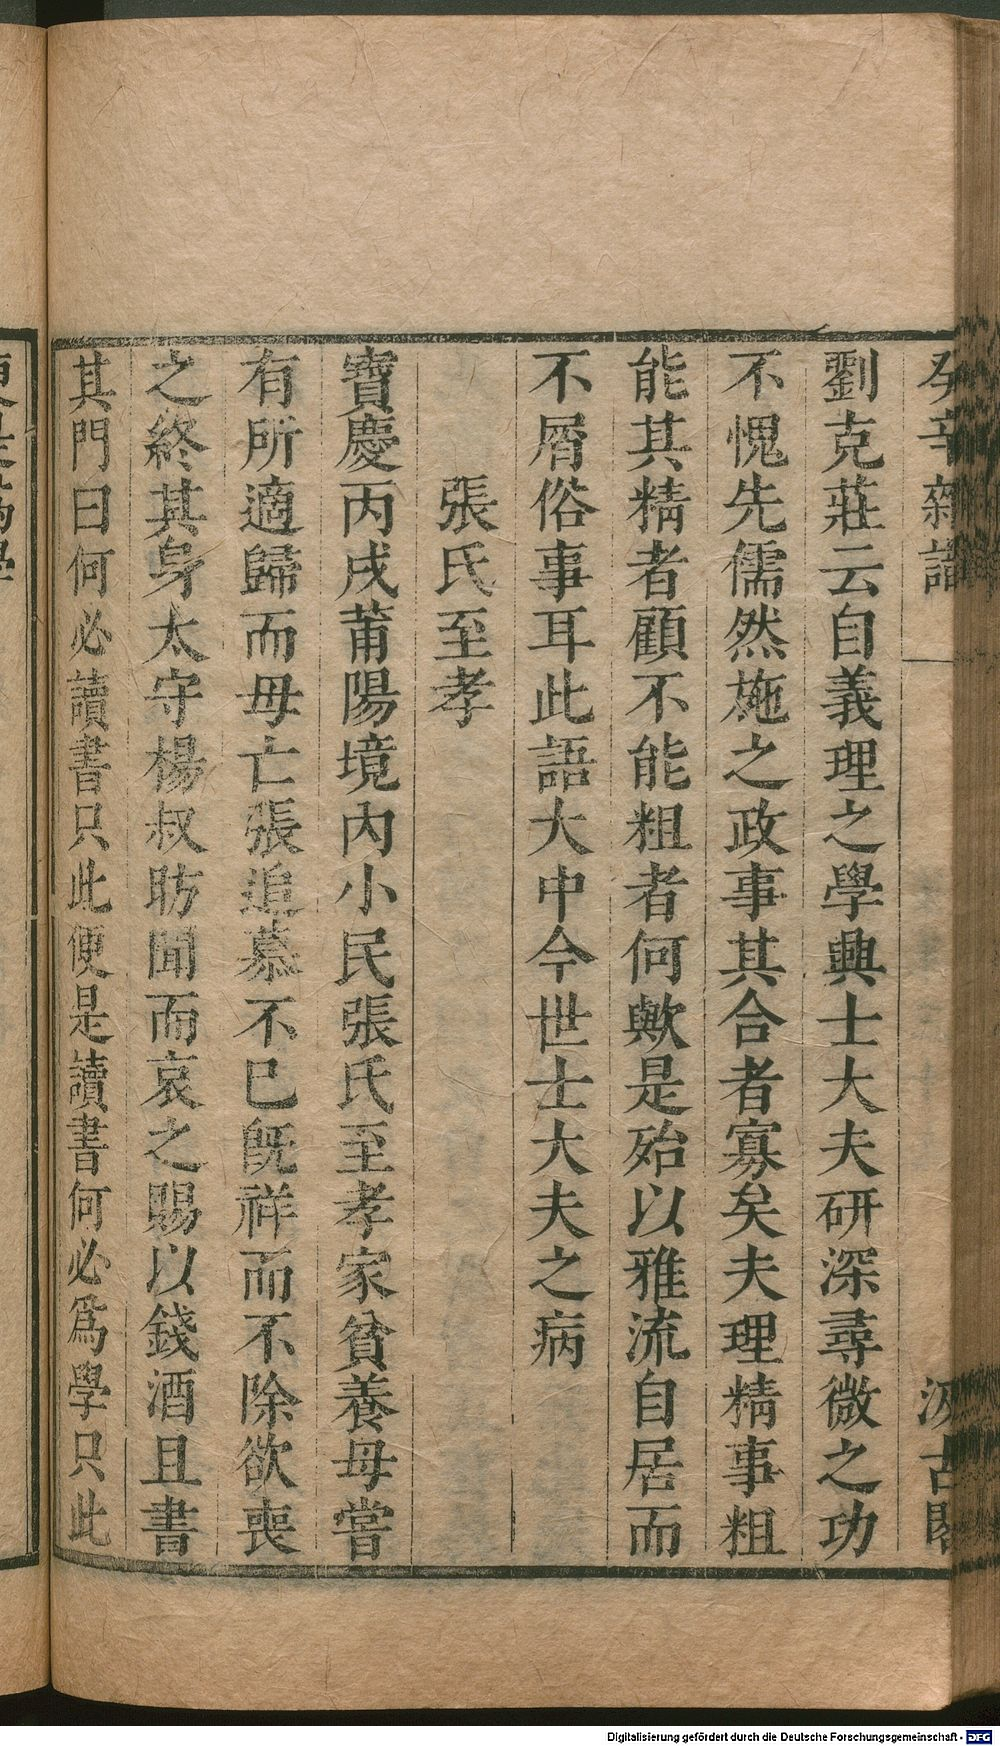 癸辛雜識
汲古閣
劉克莊云自義理之學興士大夫研深尋微之功
不愧先儒然施之政事其合者寡矣夫理精事粗
能其精者顧不能粗者何歟是殆以雅流自居而
不屑俗事耳此語大中今世士大夫之病
張氏至孝
寶慶丙戌莆陽境內小民張氏至孝家貧養母嘗
有所適歸而母亡張追慕不已旣祥而不除欲喪
之終其身太守楊叔昉聞而哀之賜以錢酒且書
其門曰何必讀書只此便是讀書何必爲學只此
Digitalisierung gefördert durch die Deutsche Forschungsgemeinschaft - DFG